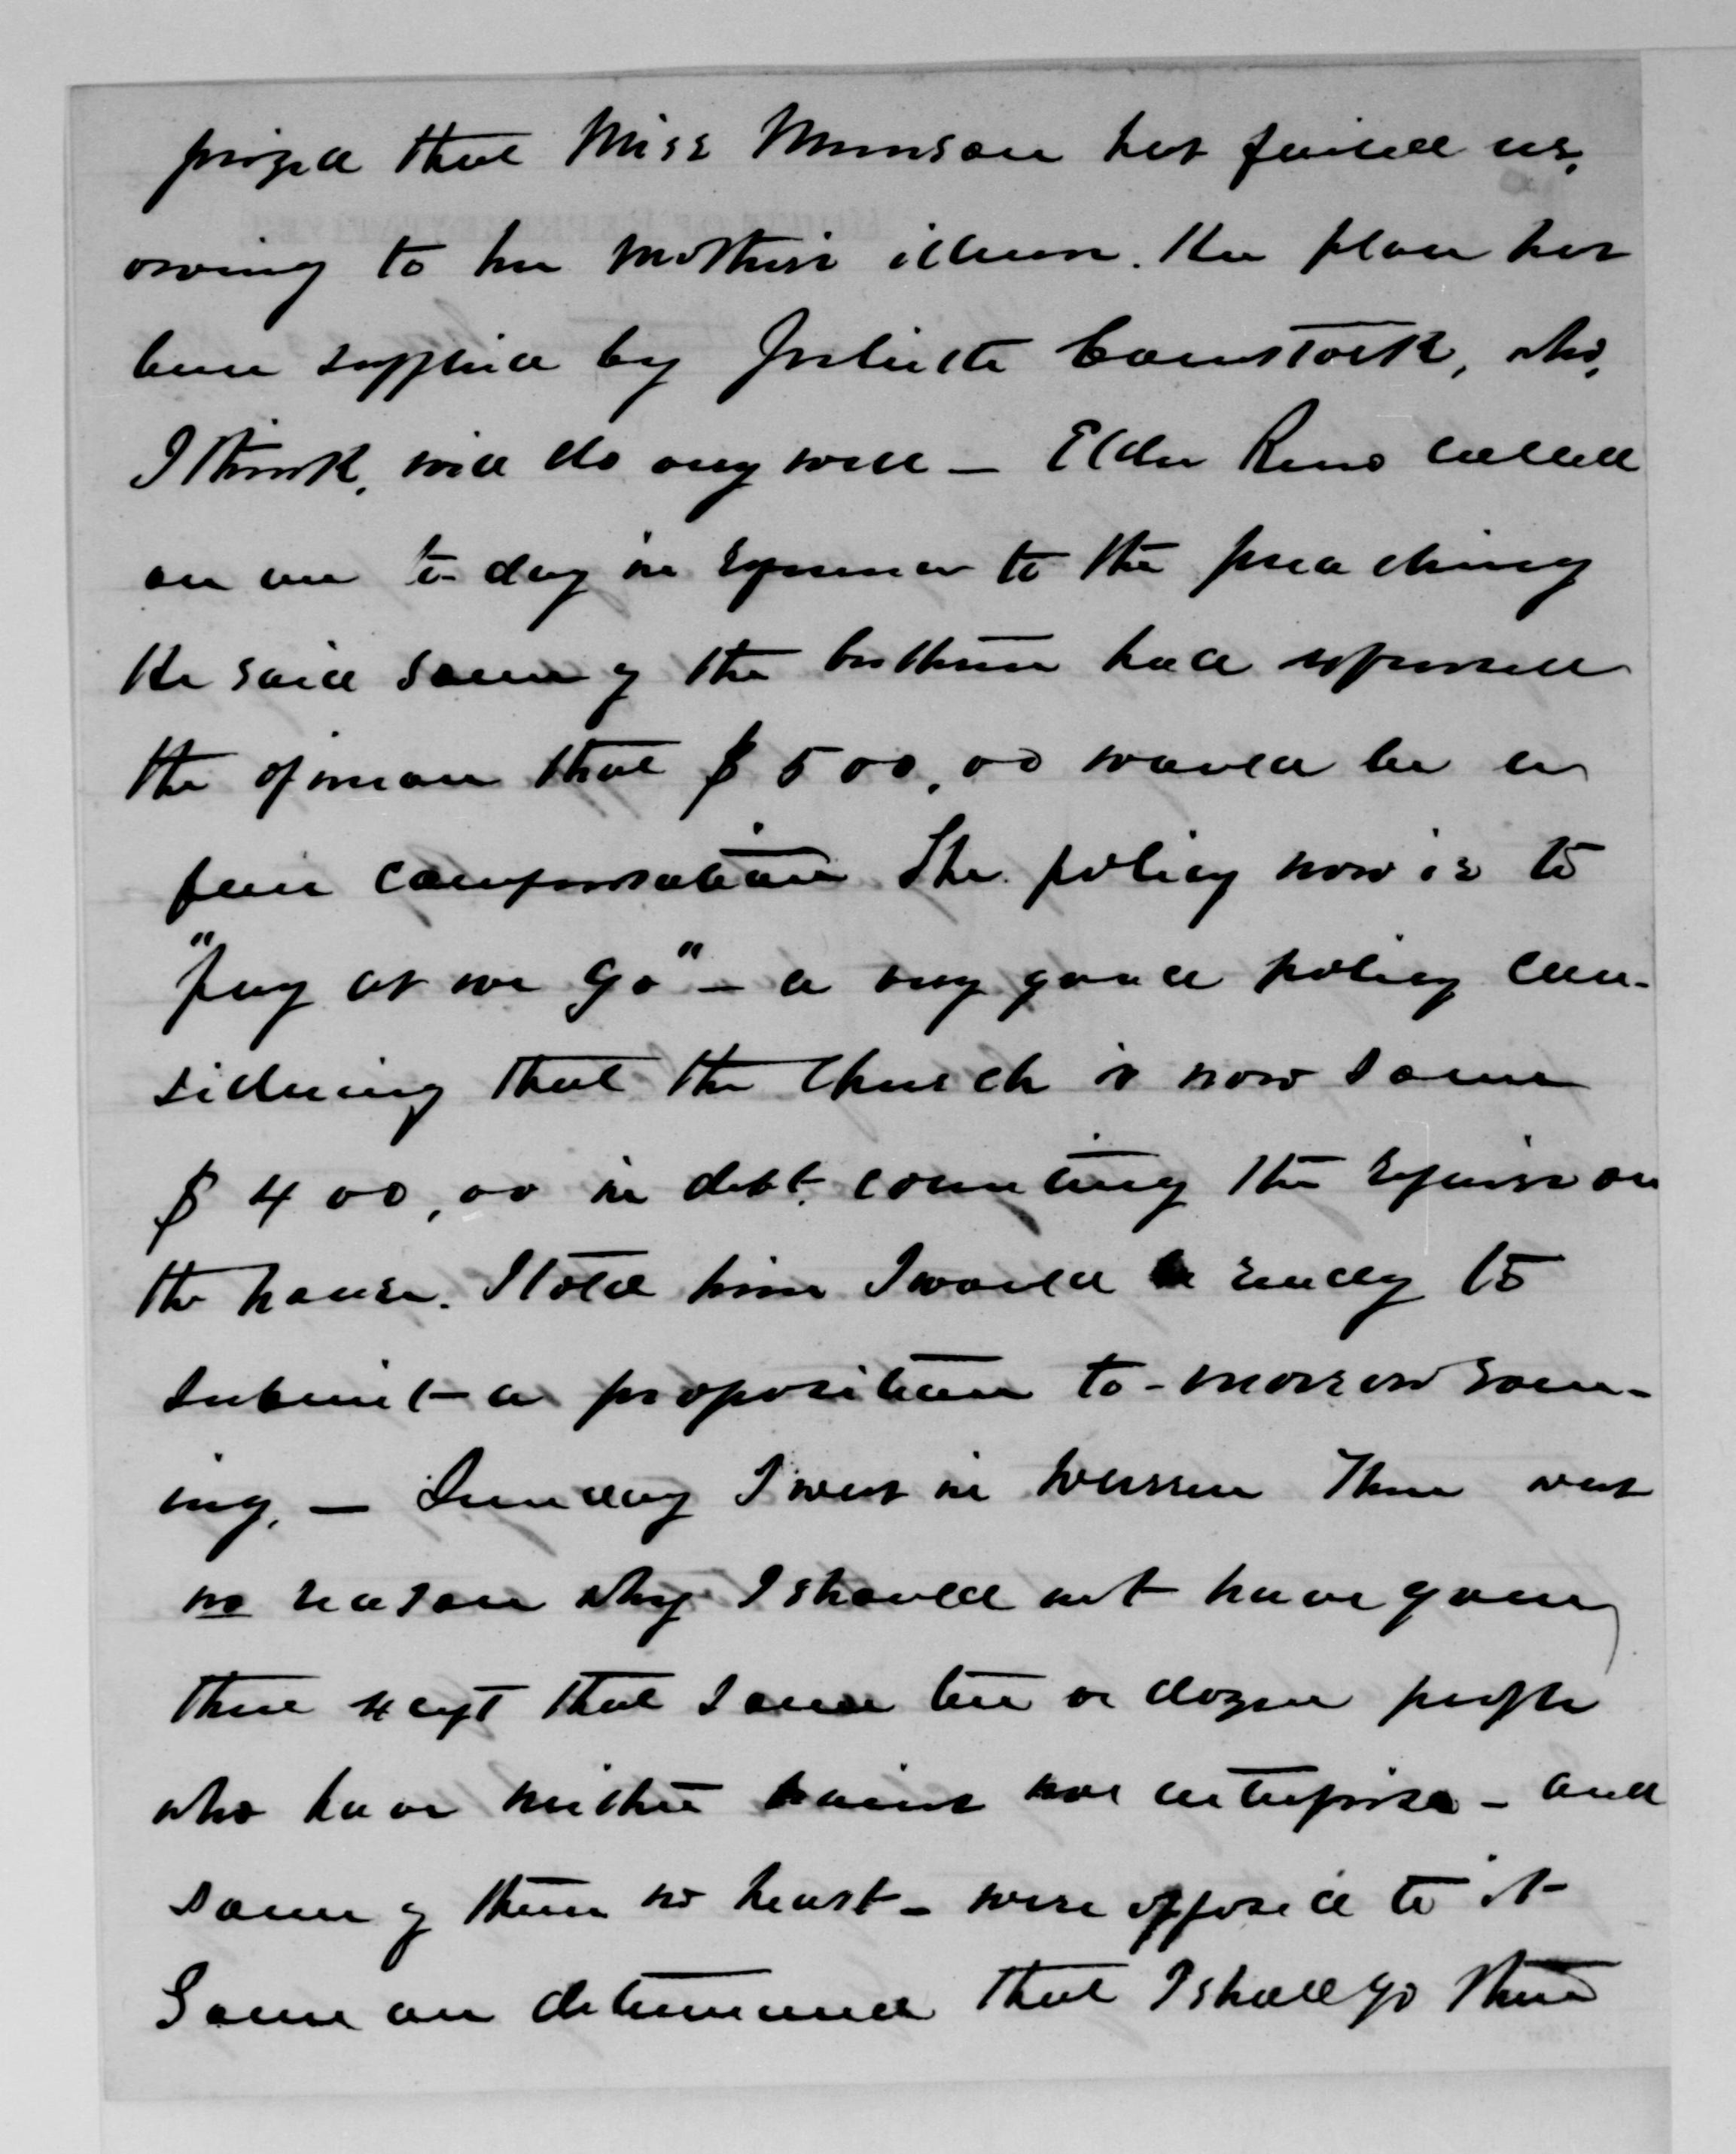 prized that Miss Munson has failed us,
owing to her mother's illness. Her place has
been supplied by Juliette Comstock, who,
I think, will do very well — Elder Reno called
on me to-day in regard to the preaching
He said some of the brethren had expressed
the opinion that $500,00 would be a
fair compensation. The policy now is to
"pay as we go" — a very good policy con-
sidering that the church is now some
$400,00 in debt, counting the repairs on
the house. I told him I would be ready to
submit a proposition to-morrow even-
ing. — Sunday I was in Warren There was
no reason why I should not have gone
there except that some ten or dozen people
who have neither brains nor enterprise — and
some of them no heart — were opposed to it
Some are determined that I shall go there